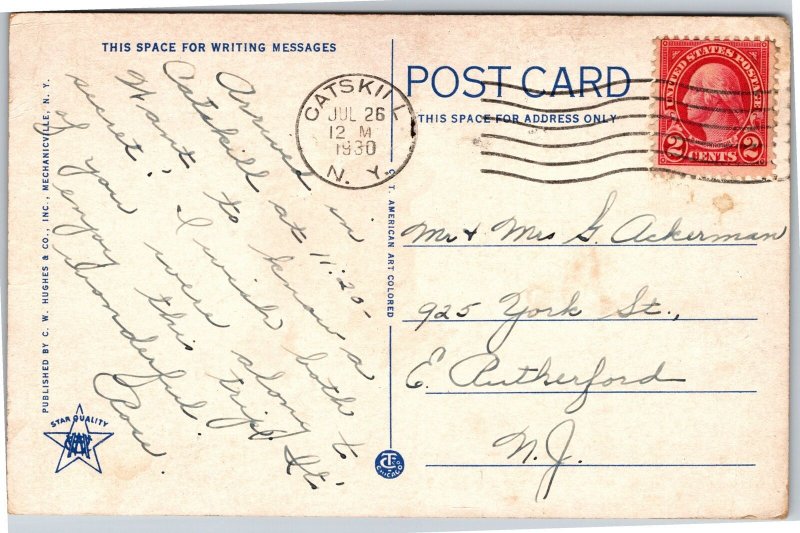 THIS SPACE FOR WRITING MESSAGES
Arrived in
Catskill at 11:20-
Want to know a
secret? I wish both
of you were along to
enjoy this trip. It's
wonderful.
Rose.
PUBLISHED BY C. W. HUGHES & CO., INC., MECHANICVILLE, N. Y.
STAR QUALITY
C. T. AMERICAN ART COLORED
CHICAGO
POST CARD
THIS SPACE FOR ADDRESS ONLY
CATSKILL
JUL 26
12 M
1930
N. Y.
UNITED STATES POSTAGE
2 CENTS 2
Mr & Mrs G. Ackerman
925 York St.,
E. Rutherford
N.J.